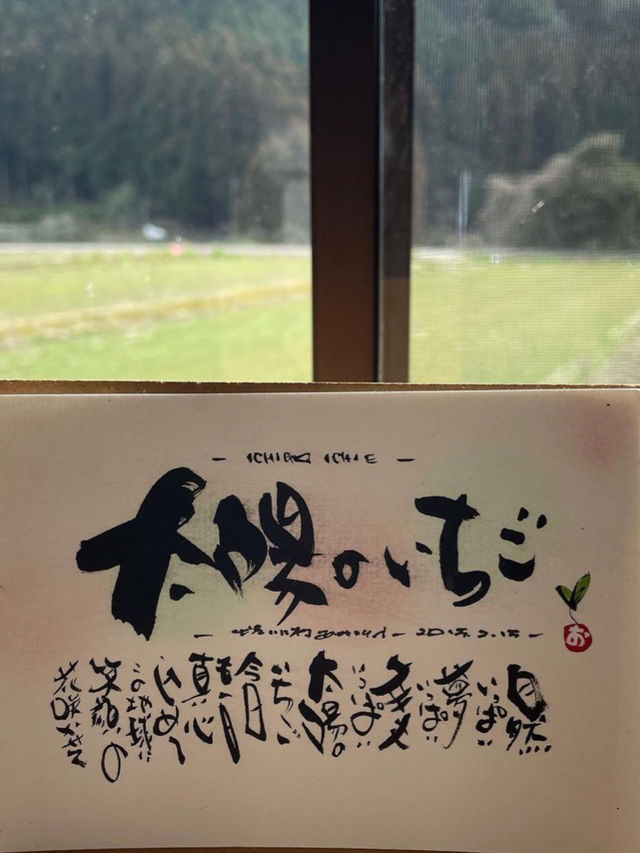 — ICHIGO ICHIE —
太陽のいちご
お
自然
いっぱい
夢
いっぱい
いっぱい
太陽の
いちご
今日
真心
こめて
この地球に
笑顔の
花咲かせ